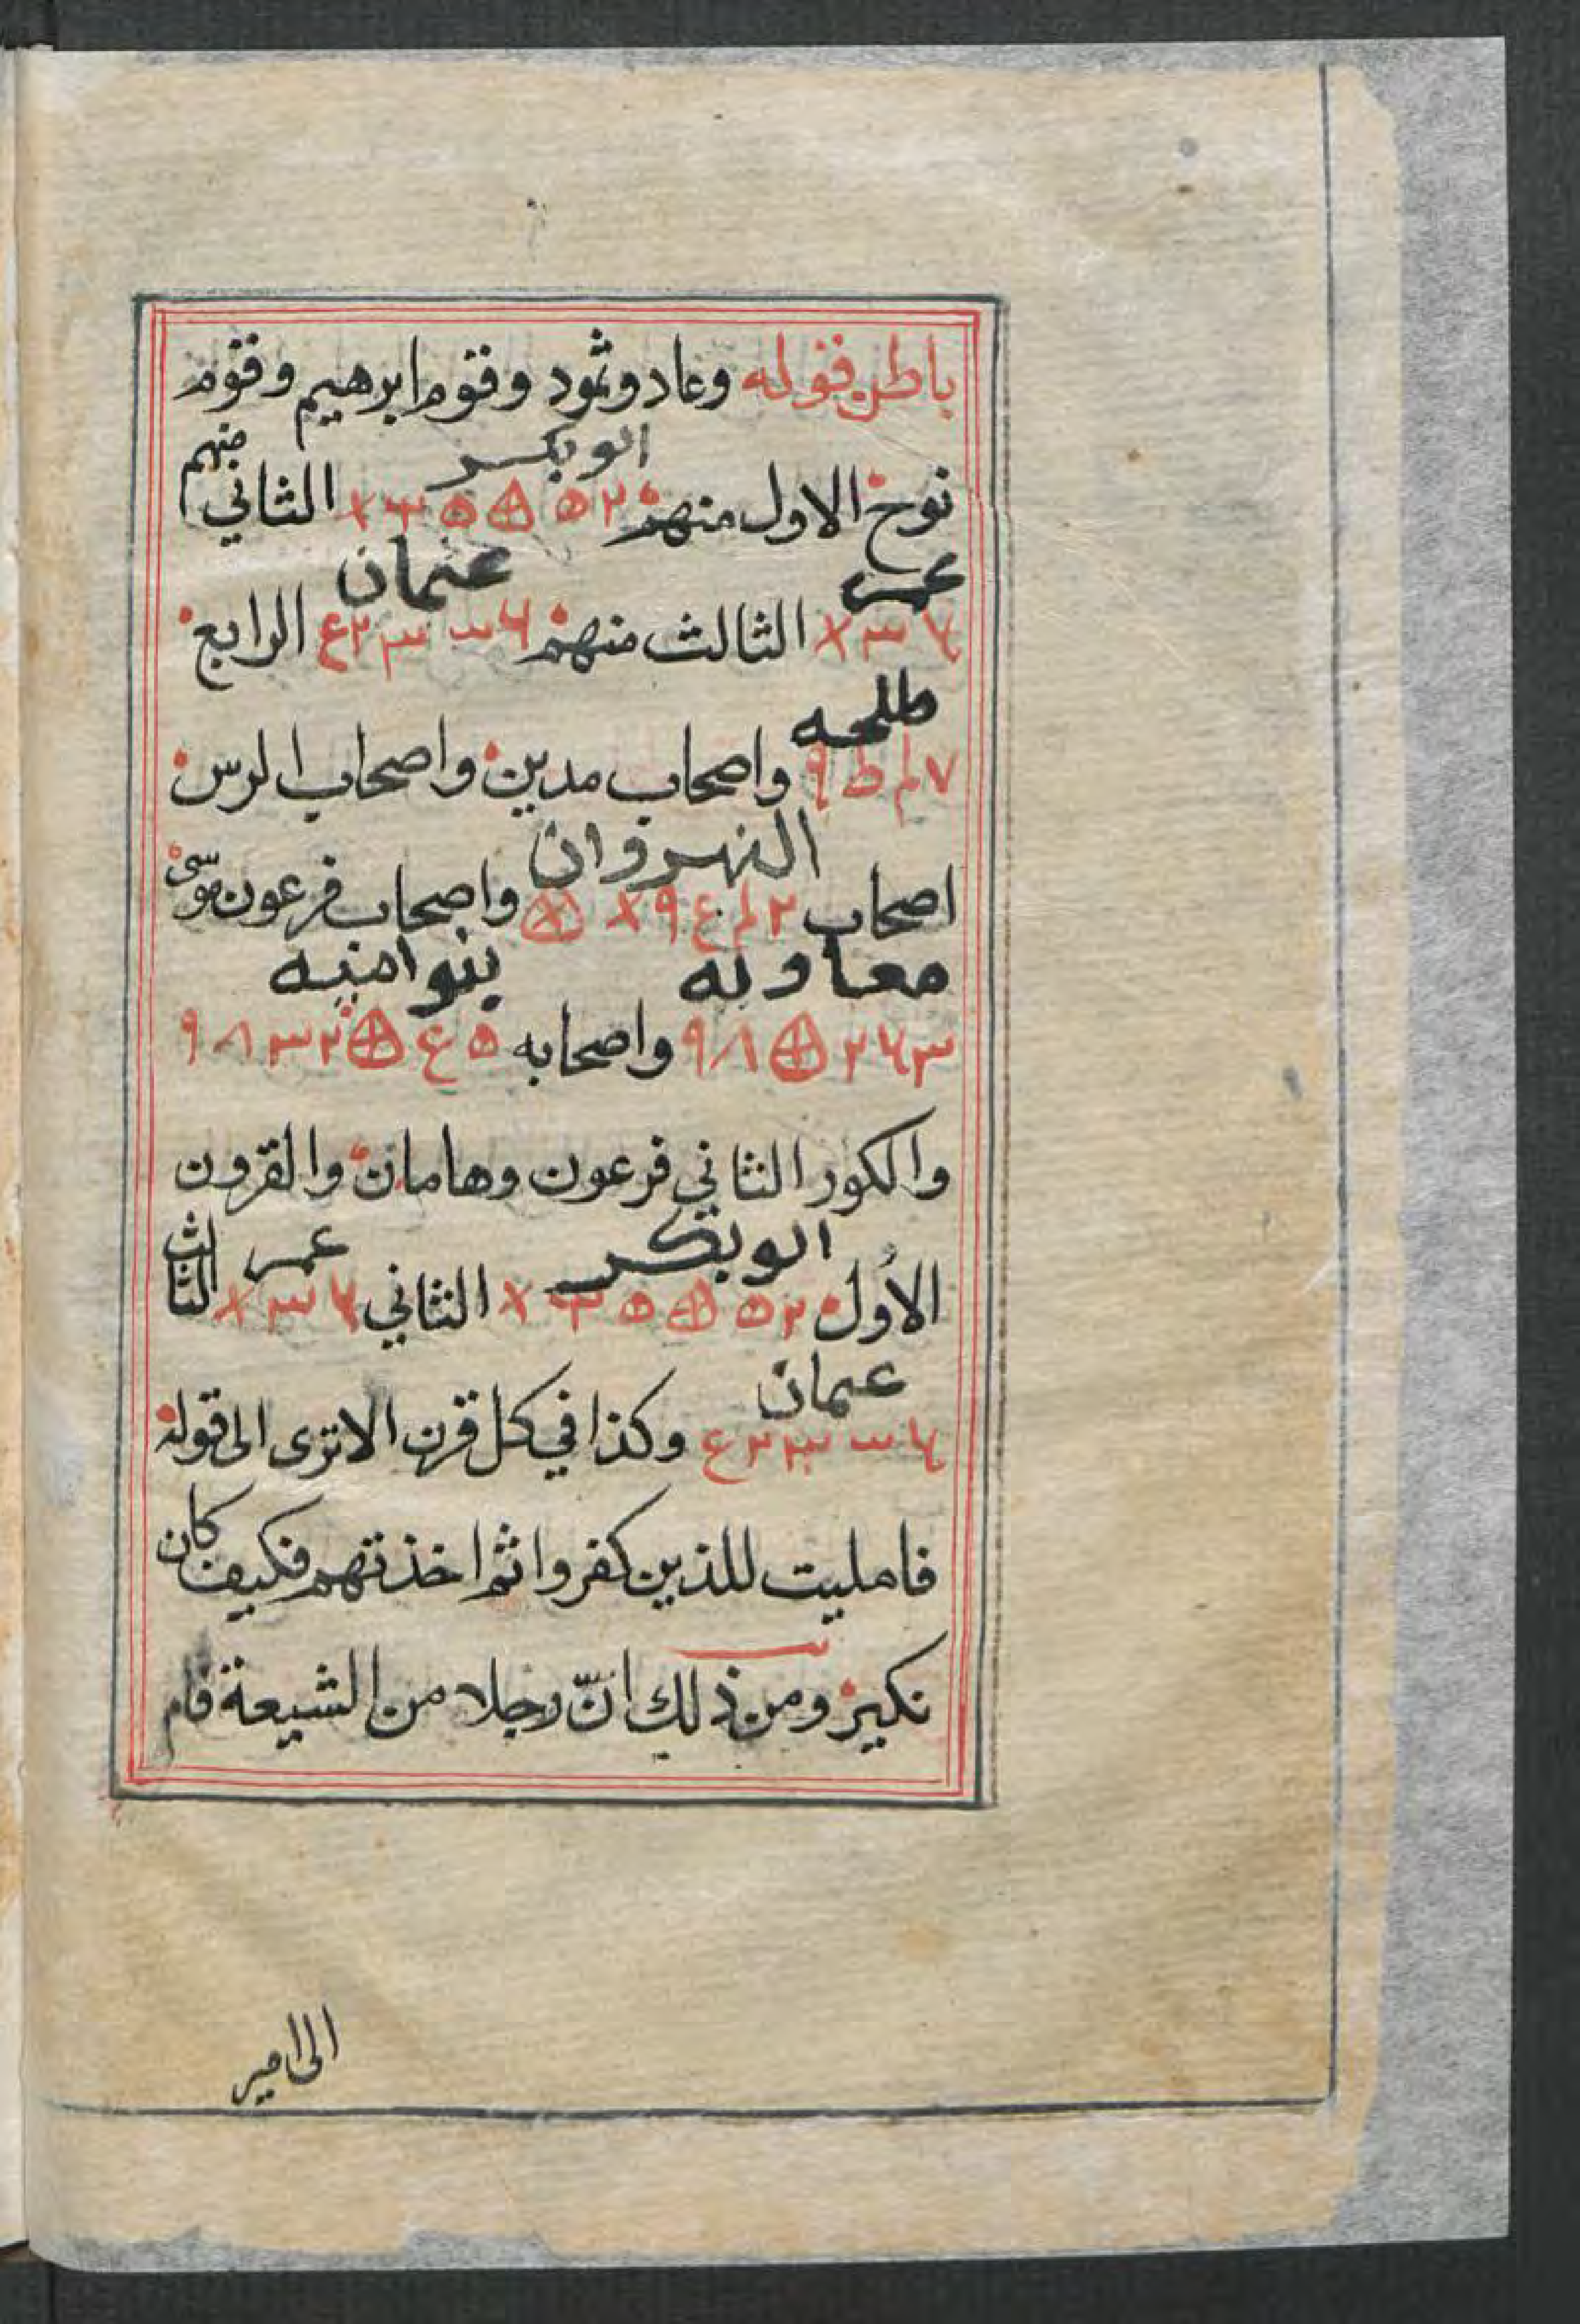 باطن قوله وعاد وثمود وقوم ابرهيم وقوم
ابو بكر
نوح الاول منهم الثاني منهم
عمر عثمان
الثالث منهم الرابع
طلحه
واصحاب مدين واصحاب الرس
النهروان
اصحاب واصحاب فرعون موسى
معاويه بنو اميه
واصحابه
والكور الثاني فرعون وهامان والقرون
ابو بكر عمر
الاول الثاني الثالث
عثمان
وكذا في كل قرن الا ترى الى قوله
فامليت للذين كفروا ثم اخذتهم فكيف كان
نكير ومن ذلك انّ رجلا من الشيعة قام
الى امير